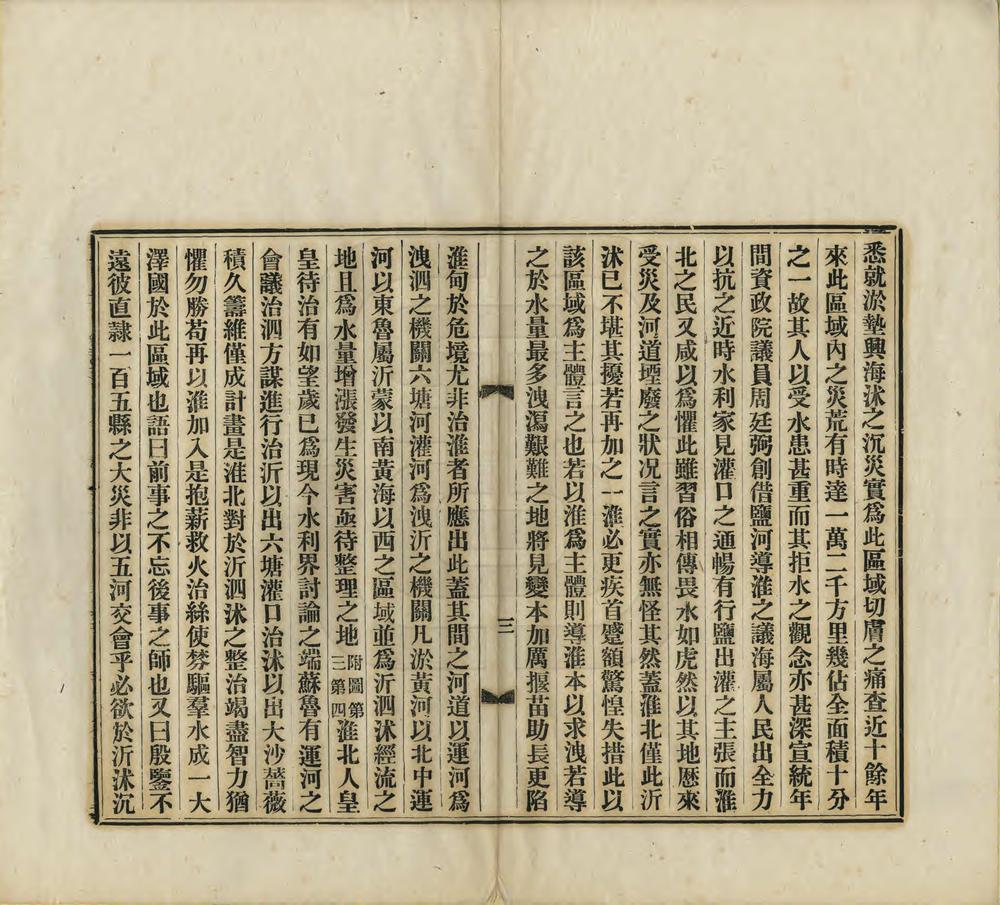 悉就淤墊興海沭之沉災實爲此區域切膚之痛查近十餘年
來此區域內之災荒有時達一萬二千方里幾佔全面積十分
之一故其人以受水患甚重而其拒水之觀念亦甚深宣統年
間資政院議員周廷弼創借鹽河導淮之議海屬人民出全力
以抗之近時水利家見灌口之通暢有行鹽出灌之主張而淮
北之民又咸以爲懼此雖習俗相傳畏水如虎然以其地歷來
受災及河道堙廢之狀况言之實亦無怪其然蓋淮北僅此沂
沭已不堪其擾若再加之一淮必更疾首蹙額驚惶失措此以
該區域爲主體言之也若以淮爲主體則導淮本以求洩若導
之於水量最多洩瀉艱難之地將見變本加厲揠苗助長更陷
三
淮甸於危境尤非治淮者所應出此蓋其間之河道以運河爲
洩泗之機關六塘河灌河爲洩沂之機關凡淤黃河以北中運
河以東魯屬沂蒙以南黃海以西之區域並爲沂泗沭經流之
地且爲水量增漲發生災害亟待整理之地附圖第三第四淮北人皇
皇待治有如望歲已爲現今水利界討論之端蘇魯有運河之
會議治泗方謀進行治沂以出六塘灌口治沭以出大沙薔薇
積久籌維僅成計畫是淮北對於沂泗沭之整治竭盡智力猶
懼勿勝苟再以淮加入是抱薪救火治絲使棼驅羣水成一大
澤國於此區域也語曰前事之不忘後事之師也又曰殷鑒不
遠彼直隷一百五縣之大災非以五河交會乎必欲於沂沭沉